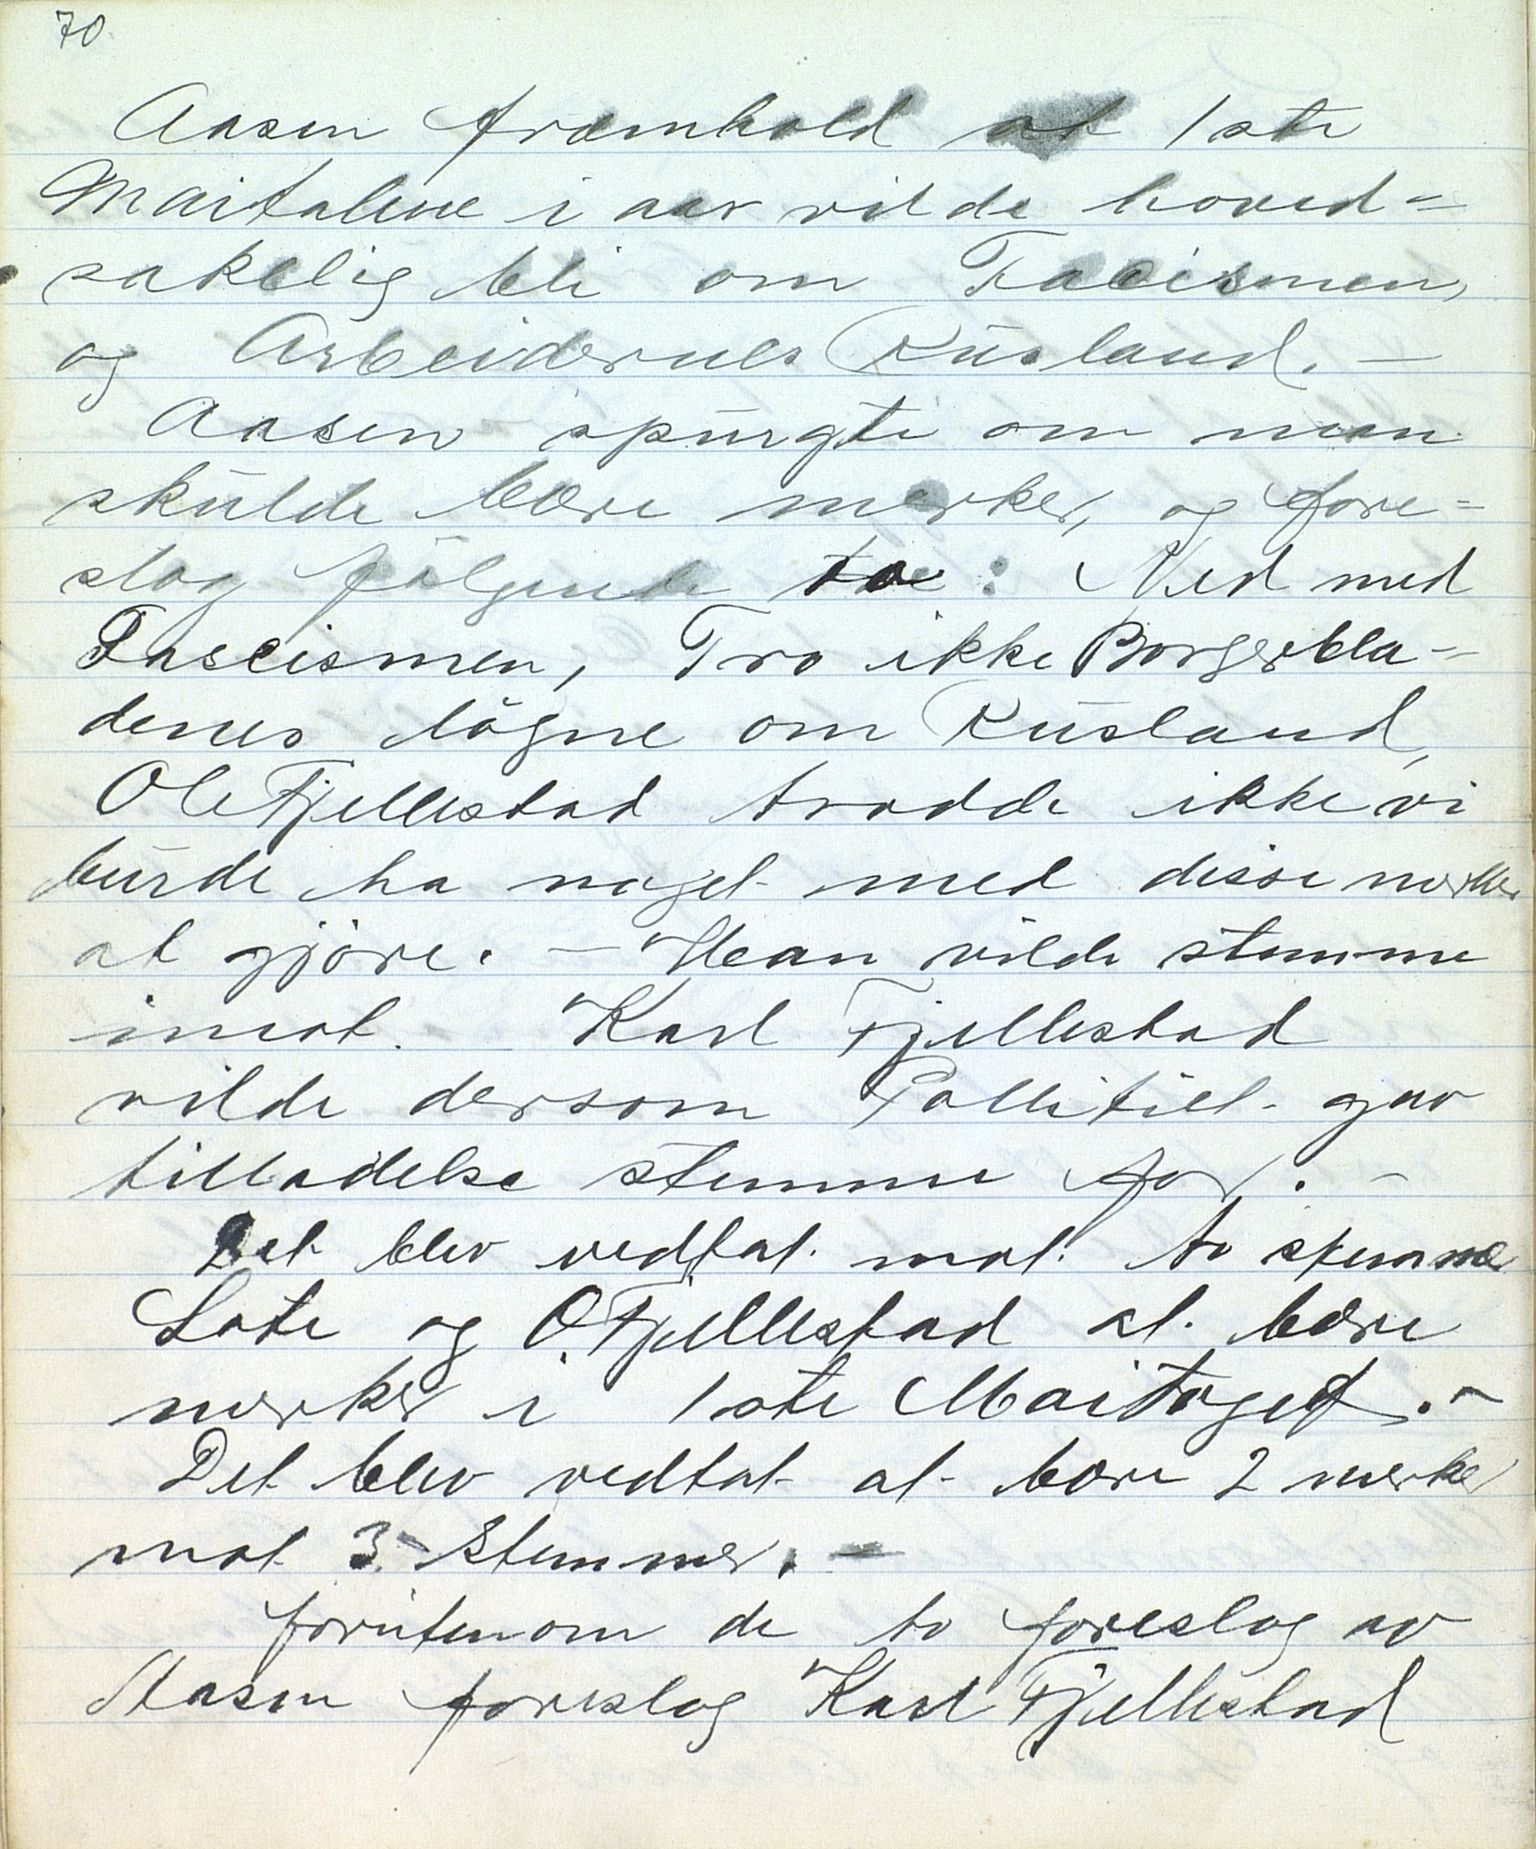 70
Aasen fræmhold at 1ste
Maitalene i aar vilde hoved=
sakelig bli om Facismen,
og Arbeidernes Rusland. —
Aasen spurgte om man
skulde bære merker, og fore=
slog følgende to: Ned med
Fascismen, Tro ikke Borgerbla-
denes løgne om Rusland,
Ole Fjellestad trodde ikke vi
burde ha noget med disse merker
at gjøre. — Han vilde stemme
imot. Karl Fjellestad
vilde dersom Pollitiet gav
tilladelse stemme for. —
Det blev vedtat mot to stemmer
Lote og O. Fjellestad at bære
merker i 1ste Maitoget. —
Det blev vedtat at bære 2 merker
mot 3 stemmer. —
forutenom de to foreslog av
Aasen foreslog Karl Fjellestad